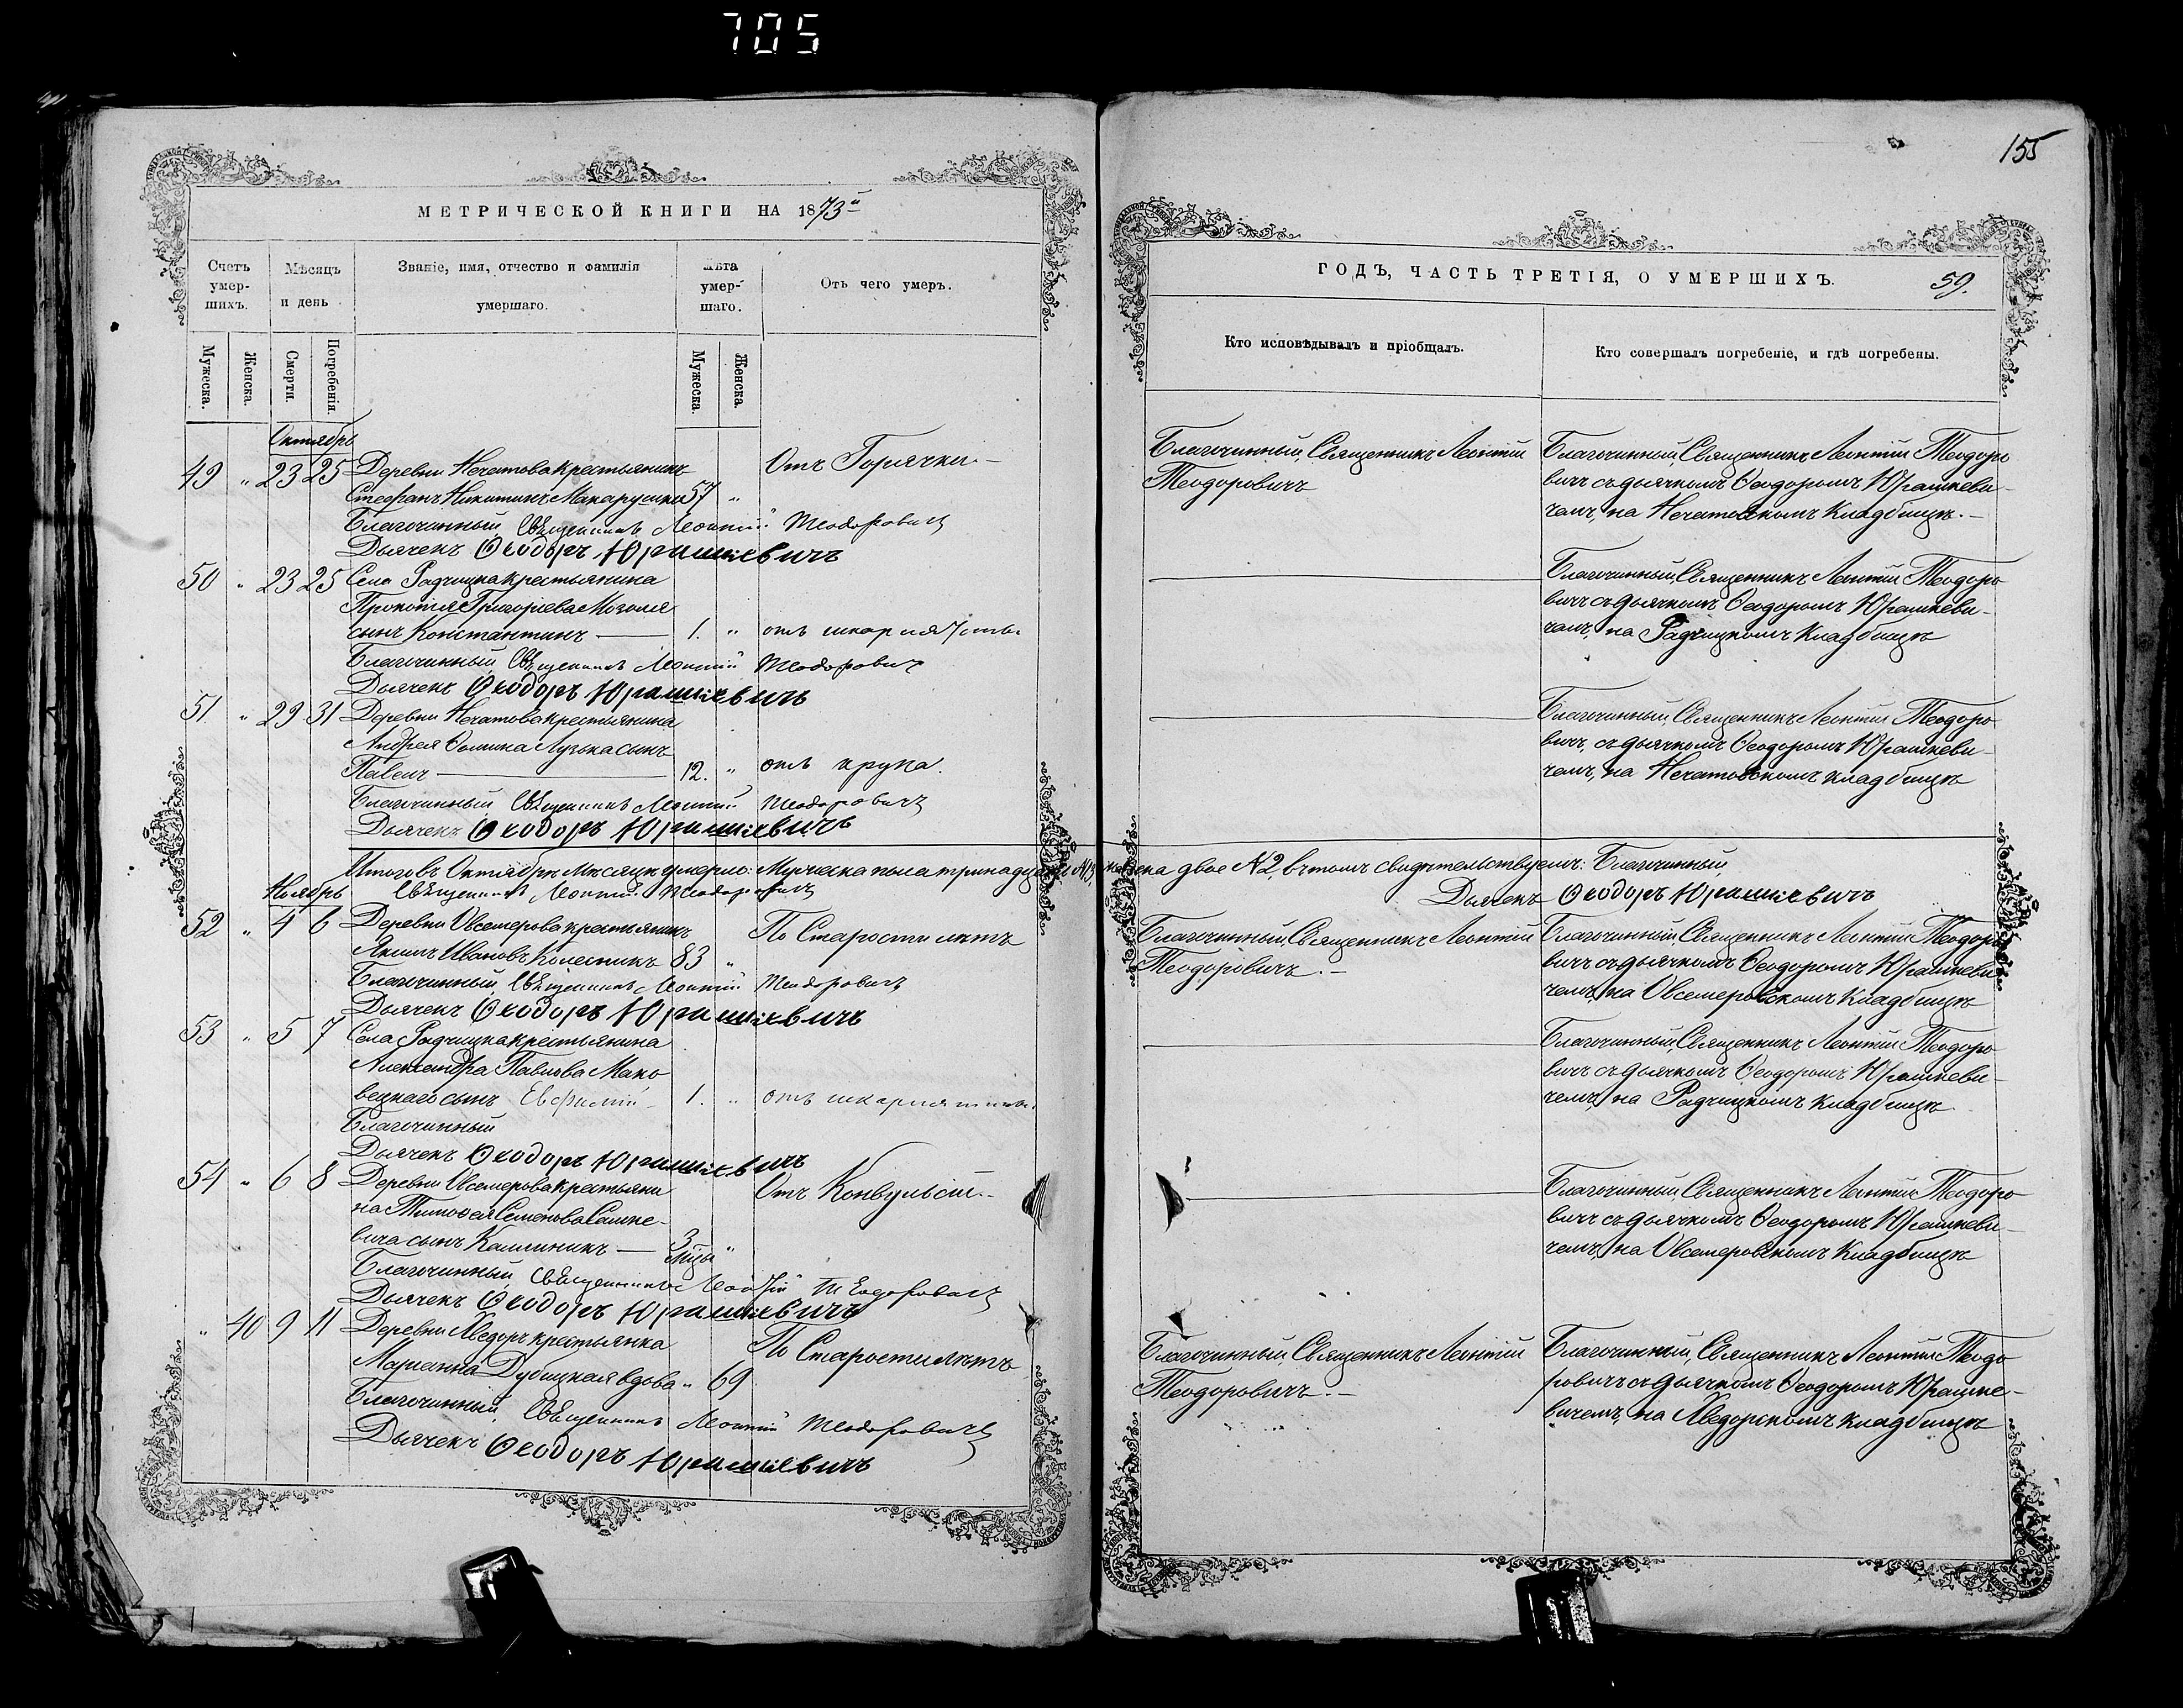 705
155
МЕТРИЧЕСКОЙ КНИГИ НА 1873й
Счетъ умер-шихъ.
Мѣсяцъ и день
Званіе, имя, отчество и фамилія умершаго.
Лѣта умер-шаго.
Отъ чего умеръ.
Мужеска.
Женска.
Смерти.
Погребенія.
Мужеска.
Женска.
ГОДЪ, ЧАСТЬ ТРЕТІЯ, О УМЕРШИХЪ.
59.
Кто исповѣдывалъ и пріобщалъ.
Кто совершалъ погребеніе, и гдѣ погребены.
Октябрь
49 „ 23 25 Деревни Нечатова крестьянинъ Отъ Горячки.
Стефанъ Никитинъ Макарушка 57 „
Благочинный Священникъ Леонтій Теодоровичъ
Дьячекъ Ѳеодоръ Юрашкевичъ
Благочинный, Священникъ Леонтій
Теодоровичъ
Благочинный, Священникъ Леонтій Теодоро
вичъ съ дьячкомъ Ѳеодоромъ Юрашкеви-
чемъ, на Нечатовскомъ Кладбищѣ.
50 „ 23 25 Села Радчицка крестьянина
Прокопія Григоріева Мозоля
сынъ Константинъ 1. „ отъ шкарлятины
Благочинный Священникъ Леонтій Теодоровичъ
Дьячекъ Ѳеодоръ Юрашкевичъ
Благочинный, Священникъ Леонтій Теодоро
вичъ съ дьячкомъ Ѳеодоромъ Юрашкеви-
чемъ, на Радчицкомъ Кладбищѣ
51 „ 29 31 Деревни Нечатова крестьянина
Андрея Ѳомина сынъ
Павелъ 12. „ отъ крупа.
Благочинный Священникъ Леонтій Теодоровичъ
Дьячекъ Ѳеодоръ Юрашкевичъ
Благочинный, Священникъ Леонтій Теодоро
вичъ, съ дьячкомъ Ѳеодоромъ Юрашкеви-
чемъ, на Нечатовскомъ кладбищѣ
Итого въ Октябрѣ Мѣсяцѣ умерло: Мужеска пола тринадцать №13, женска двое №2 въ томъ свидѣтельствуемъ: Благочинный,
Священникъ Леонтій Теодоровичъ
Дьячекъ Ѳеодоръ Юрашкевичъ
Ноябрь
52 „ 4 6 Деревни Овсемерова крестьянинъ По Старости лѣтъ
Якимъ Ивановъ Колесникъ 83 „
Благочинный, Священникъ Леонтій Теодоровичъ
Дьячекъ Ѳеодоръ Юрашкевичъ
Благочинный, Священникъ Леонтій
Теодоровичъ.
Благочинный, Священникъ Леонтій Теодоро
вичъ съ дьячкомъ Ѳеодоромъ Юрашкеви
чемъ, на Овсемеровскомъ Кладбищѣ
53 „ 5 7 Села Радчицка крестьянина
Александра Павлова Мако
вецкаго сынъ Евфимій 1. „ отъ шкарлятины.
Благочинный
Дьячекъ Ѳеодоръ Юрашкевичъ
Благочинный, Священникъ Леонтій Теодоро
вичъ съ дьячкомъ Ѳеодоромъ Юрашкеви-
чемъ, на Радчицкомъ кладбищѣ
54 „ 6 8 Деревни Овсемерова крестьяни Отъ Конвульсій.
на Тимоѳея Семенова Сашке-
вича сынъ Калиникъ 3 мѣсц „
Благочинный, Священникъ Леонтій Теодоровичъ
Дьячекъ Ѳеодоръ Юрашкевичъ
Благочинный, Священникъ Леонтій Теодоро
вичъ съ дьячкомъ Ѳеодоромъ Юрашкеви-
чемъ, на Овсемеровскомъ Кладбищѣ
„ 40 9 11 Деревни Хведоръ крестьянка По Старости лѣтъ
Маріанна Дубицкая вдова „ 69
Благочинный, Священникъ Леонтій Теодоровичъ
Дьячекъ Ѳеодоръ Юрашкевичъ
Благочинный, Священникъ Леонтій
Теодоровичъ.
Благочинный, Священникъ Леонтій Теодо
ровичъ съ дьячкомъ Ѳеодоромъ Юрашке-
вичемъ, на Хведорскомъ кладбищѣ